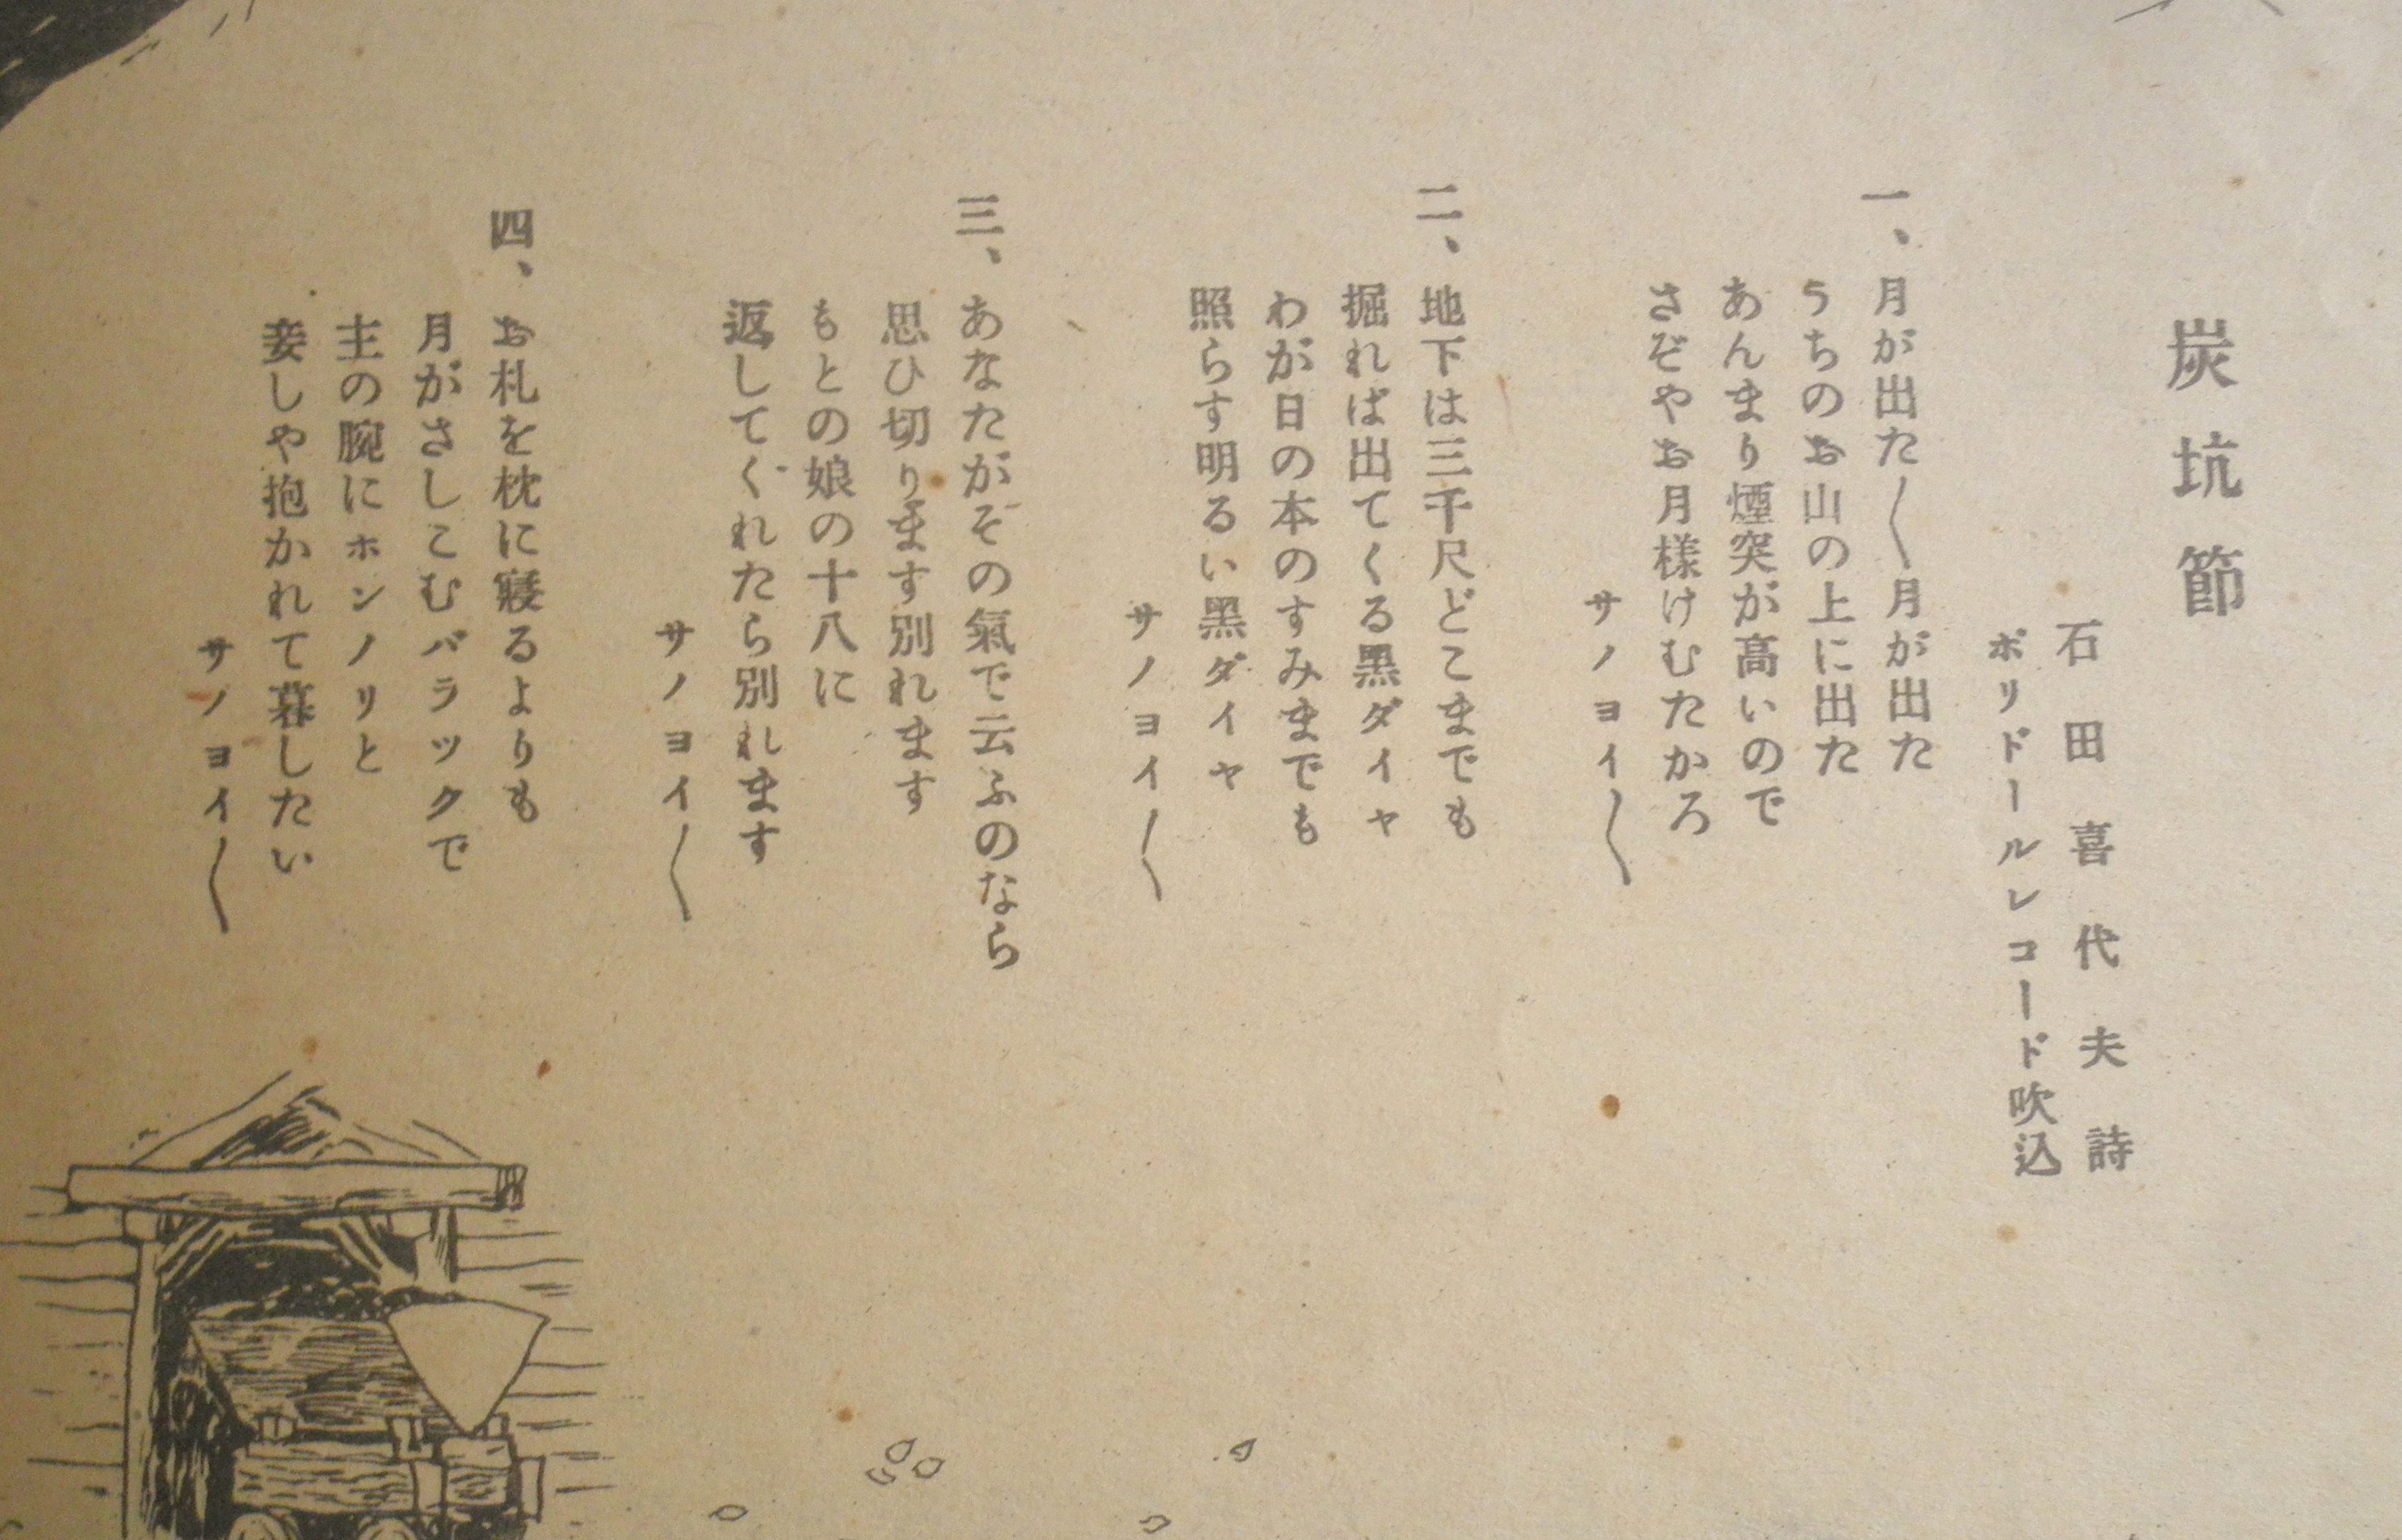 炭坑節
石田喜代夫詩
ポリドールレコード吹込
一、月が出た〱月が出た
うちのお山の上に出た
あんまり煙突が高いので
さぞやお月様けむたかろ
サノヨイ〱
二、地下は三千尺どこまでも
掘れば出てくる黒ダイヤ
わが日の本のすみまでも
照らす明るい黒ダイヤ
サノヨイ〱
三、あなたがその氣で云ふのなら
思ひ切ります別れます
もとの娘の十八に
返してくれたら別れます
サノヨイ〱
四、お札を枕に寢るよりも
月がさしこむバラックで
主の腕にホンノリと
妾しや抱かれて暮したい
サノヨイ〱